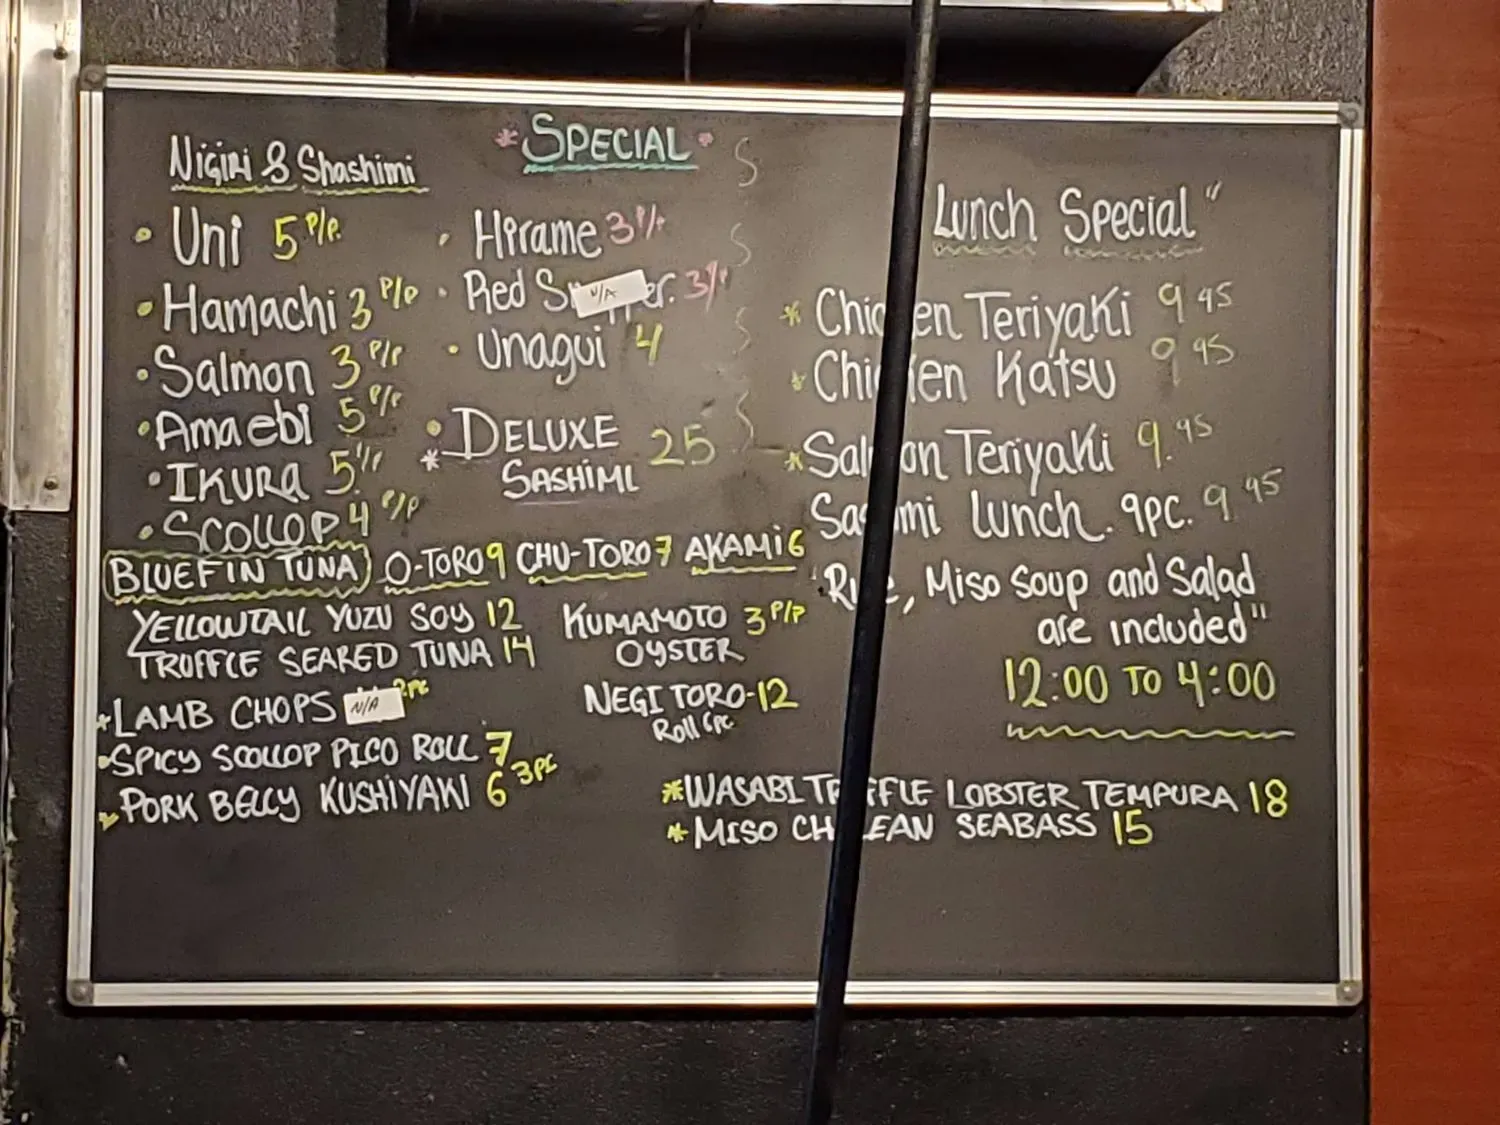 * SPECIAL *
Nigiri & Shashimi
• Uni 5 P/P.
• Hamachi 3 P/P
• Salmon 3 P/P
• Amaebi 5 P/P
• IKURA 5 P/P
• SCOLLOP 4 P/P
• Hirame 3 P/P
• Red N/A 3/P
• Unagui 4
• DELUXE 25
* SASHIMI
BLUEFIN TUNA O-TORO 9 CHU-TORO 7 AKAMI 6
YELLOWTAIL YUZU SOY 12
TRUFFLE SEARED TUNA 14
* LAMB CHOPS N/A 2PC
• SPICY SCOLLOP PICO ROLL 7
PORK BELLY KUSHIYAKI 6 3PC
KUMAMOTO 3 P/P
OYSTER
NEGI TORO-12
Roll 6pc
Lunch Special "
* Chicken Teriyaki 9 95
* Chicken Katsu 9 95
* Salmon Teriyaki 9.95
Lunch. 9pc. 9 95
"Rice, Miso Soup and Salad
are included"
12:00 TO 4:00
* WASABI TRUFFLE LOBSTER TEMPURA 18
* MISO CHILEAN SEABASS 15